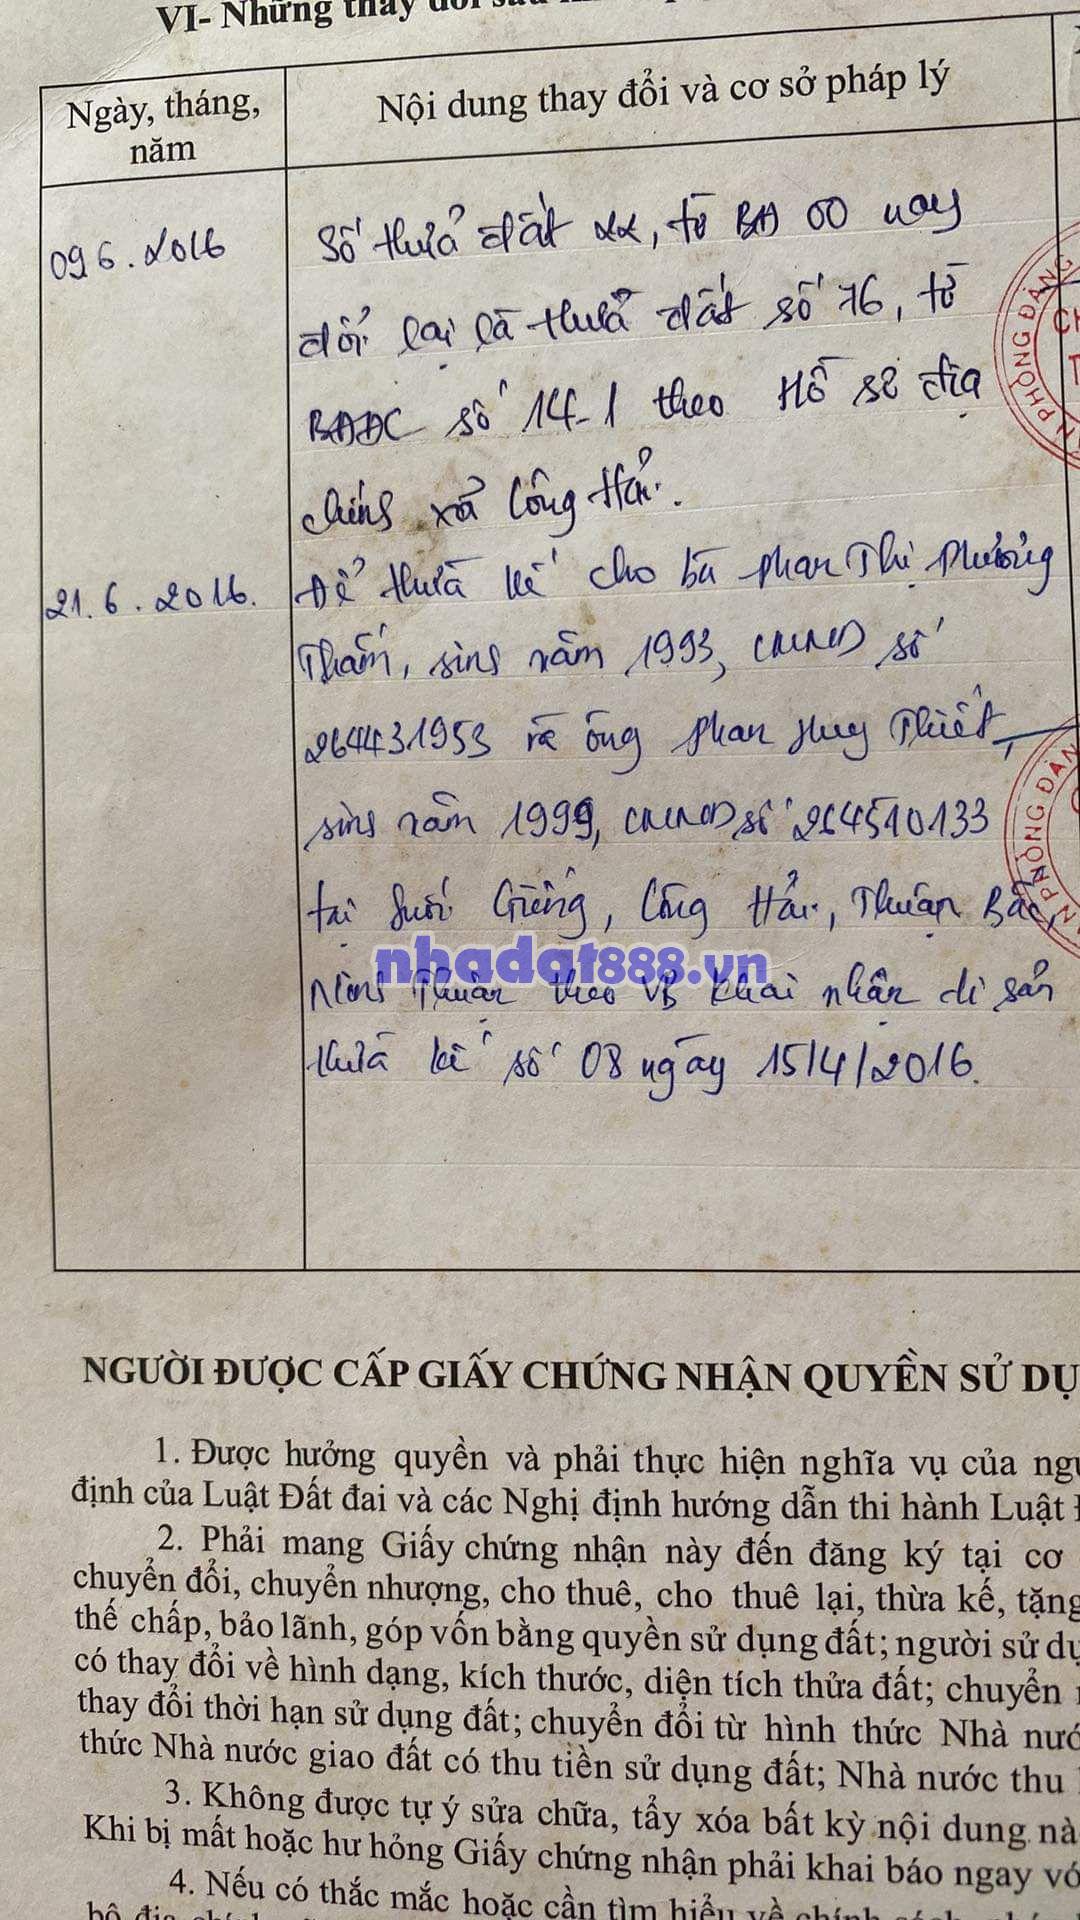 VI- Những thay đổi sau
Ngày, tháng,
năm
Nội dung thay đổi và cơ sở pháp lý
096.2016
Số thửa đất 22, tờ BĐ 00 nay
đổi lại là thửa đất số 76, tờ
BĐĐC số 14-1 theo Hồ sơ địa
chính xã Công Hải.
21.6.2016.
Để thừa kế cho bà Phan Thị Phương
Thắm, sinh năm 1993, CMND số
264431953 và ông Phan Huy Thiết,
sinh năm 1999, CMND số 264510133
tại Suối Giếng, Công Hải, Thuận Bắc,
nhadat888.vn
Ninh Thuận theo VB khai nhận di sản
thừa kế số 08 ngày 15/4/2016.
PHÒNG ĐĂNG
CH
PHÒNG ĐĂNG
NGƯỜI ĐƯỢC CẤP GIẤY CHỨNG NHẬN QUYỀN SỬ DỤ
1. Được hưởng quyền và phải thực hiện nghĩa vụ của ngư
định của Luật Đất đai và các Nghị định hướng dẫn thi hành Luật Đ
2. Phải mang Giấy chứng nhận này đến đăng ký tại cơ
chuyển đổi, chuyển nhượng, cho thuê, cho thuê lại, thừa kế, tặng
thế chấp, bảo lãnh, góp vốn bằng quyền sử dụng đất; người sử dụ
có thay đổi về hình dạng, kích thước, diện tích thửa đất; chuyển
thay đổi thời hạn sử dụng đất; chuyển đổi từ hình thức Nhà nướ
thức Nhà nước giao đất có thu tiền sử dụng đất; Nhà nước thu
3. Không được tự ý sửa chữa, tẩy xóa bất kỳ nội dung nà
Khi bị mất hoặc hư hỏng Giấy chứng nhận phải khai báo ngay vớ
4. Nếu có thắc mắc hoặc cần tìm hiểu về chính sách
bộ địa chính